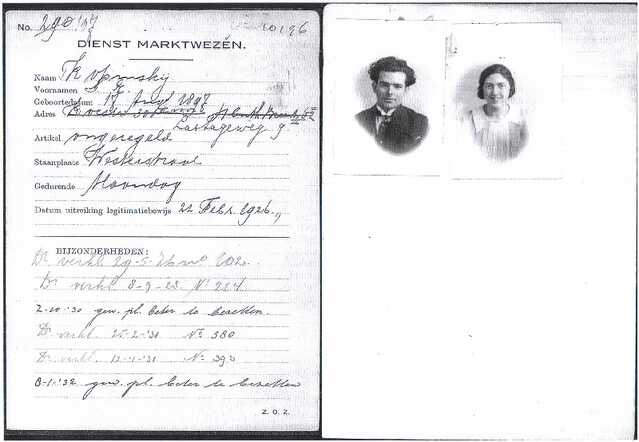 No. 290
10126
DIENST MARKTWEZEN.
Naam Kopinsky
Voornamen
Geboortedatum: 1897
Adres Lastageweg 9
Artikel ongeregeld
Staanplaats Westerstraat
Gedurende Maandag
Datum uitreiking legitimatiebewijs 22 Febr. 1926.
BIJZONDERHEDEN:
Dr verhl. 29-5-26 no 202.
Dr verhl. 8-9-28 No 254
2-10-'30 gew. pl. beter te bezetten.
Dr verhl. 25-2-'31 No 380
Dr verhl. 13-4-'31 No 390
8-1-'32 gew. pl. beter te bezetten
Z. O. Z.